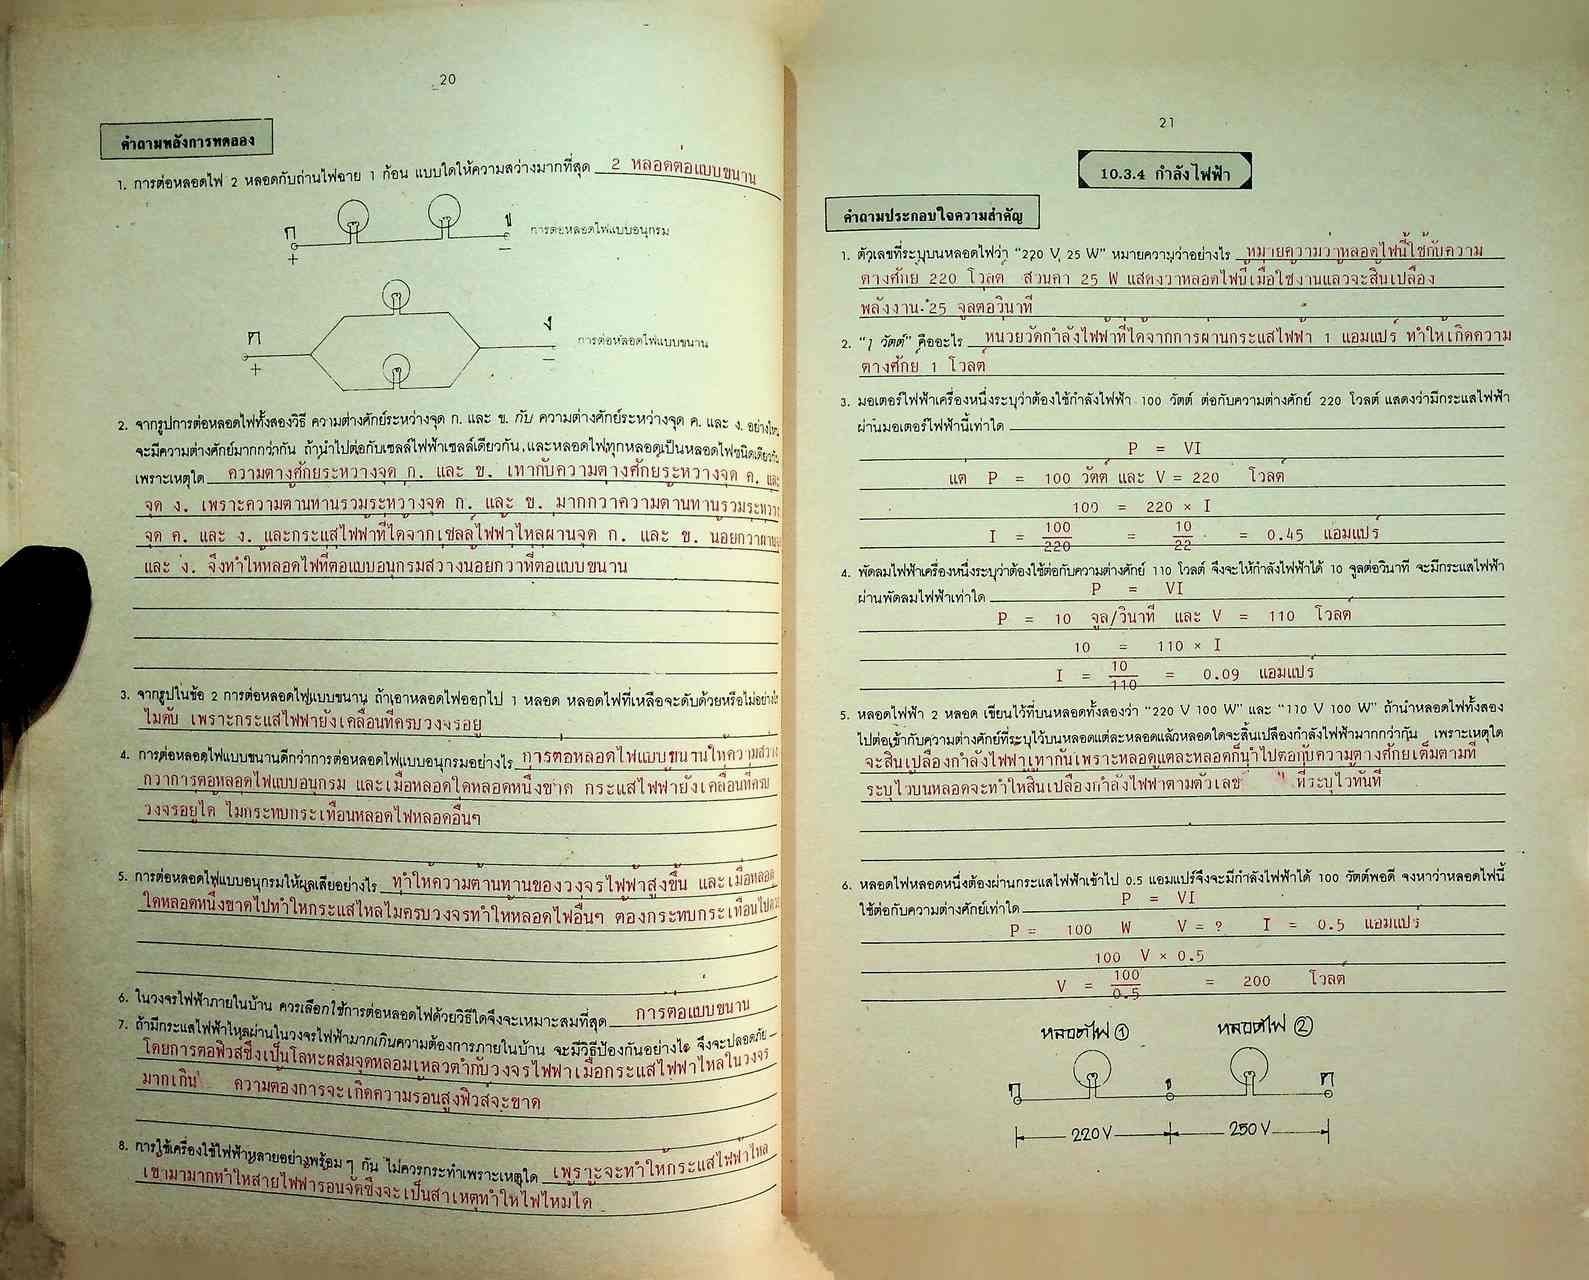 20
คำถามหลังการทดลอง
1. การต่อหลอดไฟ 2 หลอดกับถ่านไฟฉาย 1 ก้อน แบบใดให้ความสว่างมากที่สุด 2 หลอดต่อแบบขนาน
ก ข การต่อหลอดไฟแบบอนุกรม
+ −
ค ง การต่อหลอดไฟแบบขนาน
+ −
2. จากรูปการต่อหลอดไฟทั้งสองวิธี ความต่างศักย์ระหว่างจุด ก. และ ข. กับ ความต่างศักย์ระหว่างจุด ค. และ ง. อย่างไหน
จะมีความต่างศักย์มากกว่ากัน ถ้านำไปต่อกับเซลล์ไฟฟ้าเซลล์เดียวกัน และหลอดไฟทุกหลอดเป็นหลอดไฟชนิดเดียวกัน
เพราะเหตุใด ความต่างศักย์ระหว่างจุด ก. และ ข. เท่ากับความต่างศักย์ระหว่างจุด ค. และ
จุด ง. เพราะความต้านทานรวมระหว่างจุด ก. และ ข. มากกว่าความต้านทานรวมระหว่าง
จุด ค. และ ง. และกระแสไฟฟ้าที่ได้จากเซลล์ไฟฟ้าไหลผ่านจุด ก. และ ข. น้อยกว่าผ่าน
และ ง. จึงทำให้หลอดไฟที่ต่อแบบอนุกรมสว่างน้อยกว่าที่ต่อแบบขนาน
3. จากรูปในข้อ 2 การต่อหลอดไฟแบบขนาน ถ้าเอาหลอดไฟออกไป 1 หลอด หลอดไฟที่เหลือจะดับด้วยหรือไม่อย่างไร
ไม่ดับ เพราะกระแสไฟฟ้ายังเคลื่อนที่ครบวงจรอยู่
4. การต่อหลอดไฟแบบขนานดีกว่าการต่อหลอดไฟแบบอนุกรมอย่างไร การต่อหลอดไฟแบบขนานให้ความสว่าง
กว่าการต่อหลอดไฟแบบอนุกรม และเมื่อหลอดใดหลอดหนึ่งขาด กระแสไฟฟ้ายังเคลื่อนที่ครบ
วงจรอยู่ได้ ไม่กระทบกระเทือนหลอดไฟหลอดอื่นๆ
5. การต่อหลอดไฟแบบอนุกรมให้ผลเสียอย่างไร ทำให้ความต้านทานของวงจรไฟฟ้าสูงขึ้น และเมื่อหลอด
ใดหลอดหนึ่งขาดไปทำให้กระแสไหลไม่ครบวงจรทำให้หลอดไฟอื่นๆ ต้องกระทบกระเทือนไปด้วย
6. ในวงจรไฟฟ้าภายในบ้าน ควรเลือกใช้การต่อหลอดไฟด้วยวิธีใดจึงจะเหมาะสมที่สุด การต่อแบบขนาน
7. ถ้ามีกระแสไฟฟ้าไหลผ่านในวงจรไฟฟ้ามากเกินความต้องการภายในบ้าน จะมีวิธีป้องกันอย่างไร จึงจะปลอดภัย
โดยการต่อฟิวส์ซึ่งเป็นโลหะผสมจุดหลอมเหลวต่ำกับวงจรไฟฟ้าเมื่อกระแสไฟฟ้าไหลในวงจร
มากเกิน ความต้องการจะเกิดความร้อนสูงฟิวส์จะขาด
8. การใช้เครื่องใช้ไฟฟ้าหลายอย่างพร้อม ๆ กัน ไม่ควรกระทำเพราะเหตุใด เพราะจะทำให้กระแสไฟฟ้าไหล
เข้ามามากทำให้สายไฟฟ้าร้อนจัดซึ่งจะเป็นสาเหตุทำให้ไฟไหม้ได้
21
10.3.4 กำลังไฟฟ้า
คำถามประกอบใจความสำคัญ
1. ตัวเลขที่ระบุบนหลอดไฟว่า "220 V, 25 W" หมายความว่าอย่างไร หมายความว่าหลอดไฟนี้ใช้กับความ
ต่างศักย์ 220 โวลต์ ส่วนค่า 25 W แสดงว่าหลอดไฟนี้เมื่อใช้งานแล้วจะสิ้นเปลือง
พลังงาน 25 จูลต่อวินาที
2. "1 วัตต์" คืออะไร หน่วยวัดกำลังไฟฟ้าที่ได้จากการผ่านกระแสไฟฟ้า 1 แอมแปร์ ทำให้เกิดความ
ต่างศักย์ 1 โวลต์
3. มอเตอร์ไฟฟ้าเครื่องหนึ่งระบุว่าต้องใช้กำลังไฟฟ้า 100 วัตต์ ต่อกับความต่างศักย์ 220 โวลต์ แสดงว่ามีกระแสไฟฟ้า
ผ่านมอเตอร์ไฟฟ้านี้เท่าใด
P = VI
แต่ P = 100 วัตต์ และ V = 220 โวลต์
100 = 220 × I
I = 100/220 = 10/22 = 0.45 แอมแปร์
4. พัดลมไฟฟ้าเครื่องหนึ่งระบุว่าต้องใช้ต่อกับความต่างศักย์ 110 โวลต์ จึงจะให้กำลังไฟฟ้าได้ 10 จูลต่อวินาที จะมีกระแสไฟฟ้า
ผ่านพัดลมไฟฟ้าเท่าใด P = VI
P = 10 จูล/วินาที และ V = 110 โวลต์
10 = 110 × I
I = 10/110 = 0.09 แอมแปร์
5. หลอดไฟฟ้า 2 หลอด เขียนไว้ที่บนหลอดทั้งสองว่า "220 V 100 W" และ "110 V 100 W" ถ้านำหลอดไฟทั้งสอง
ไปต่อเข้ากับความต่างศักย์ที่ระบุไว้บนหลอดแต่ละหลอดแล้วหลอดใดจะสิ้นเปลืองกำลังไฟฟ้ามากกว่ากัน เพราะเหตุใด
จะสิ้นเปลืองกำลังไฟฟ้าเท่ากันเพราะหลอดแต่ละหลอดก็นำไปต่อกับความต่างศักย์เต็มตามที่
ระบุไว้บนหลอดจะทำให้สิ้นเปลืองกำลังไฟฟ้าตามตัวเลข ที่ระบุไว้ทันที
6. หลอดไฟหลอดหนึ่งต้องผ่านกระแสไฟฟ้าเข้าไป 0.5 แอมแปร์จึงจะมีกำลังไฟฟ้าได้ 100 วัตต์พอดี จงหาว่าหลอดไฟนี้
ใช้ต่อกับความต่างศักย์เท่าใด P = VI
P = 100 W V = ? I = 0.5 แอมแปร์
100 V × 0.5
V = 100/0.5 = 200 โวลต์
หลอดไฟ ① หลอดไฟ ②
ก ข ค
220 V 250 V